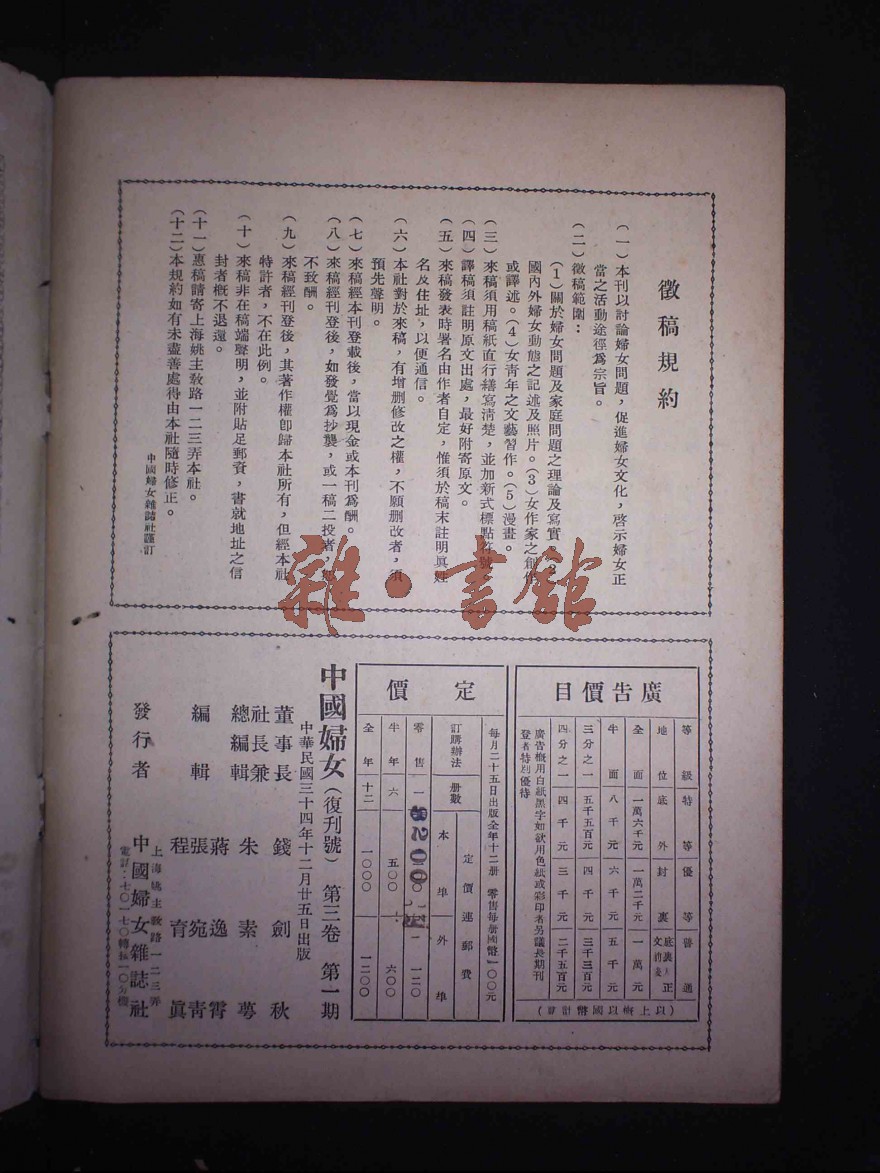 徵稿規約
（一）本刊以討論婦女問題，促進婦女文化，啓示婦女正
當之活動途徑爲宗旨。
（二）徵稿範圍：
（1）關於婦女問題及家庭問題之理論及寫實（2）
國內外婦女動態之記述及照片。（3）女作家之創作
或譯述。（4）女青年之文藝習作。（5）漫畫。
（三）來稿須用稿紙直行繕寫清楚，並加新式標點符號。
（四）譯稿須註明原文出處，最好附寄原文。
（五）來稿發表時署名由作者自定，惟須於稿末註明眞姓
名及住址，以便通信。
（六）本社對於來稿，有增删修改之權，不願删改者，須
預先聲明。
（七）來稿經本刊登載後，當以現金或本刊爲酬。
（八）來稿經刊登後，如發覺爲抄襲，或一稿二投者，
不致酬。
（九）來稿經刊登後，其著作權卽歸本社所有，但經本社
特許者，不在此例。
（十）來稿非在稿端聲明，並附貼足郵資，書就地址之信
封者概不退還。
（十一）惠稿請寄上海姚主敎路一二三弄本社。
（十二）本規約如有未盡善處得由本社隨時修正。
中國婦女雜誌社謹訂
雜·書館
廣告價目
等級 特等 優等 普通
地位 底外 封裏 正文
全面 一萬六千元 一萬二千元 一萬元
半面 八千元 六千元 五千元
三分之一 五千五百元 四千元 三千三百元
四分之一 四千元 三千元 二千五百元
廣告概用白紙黑字如欲用色紙或彩印者另議長期刊
登者特別優待
（以上概以國幣計算）
定價
每月二十五日出版全年十二册 零售每册國幣一〇〇元
訂購辦法 册數 定價連郵費
本埠 外埠
零售 一 8200 一二〇
半年 六 五〇〇 六〇〇
全年 十二 一〇〇〇 一二〇〇
中國婦女（復刊號） 第三卷 第一期
中華民國三十四年十二月廿五日出版
董事長 錢劍秋
社長兼
總編輯 朱素萼
編輯 蔣逸霄
張宛青
程育眞
發行者 中國婦女雜誌社
上海姚主敎路一二三弄
電話：七〇一七〇轉接一〇分機